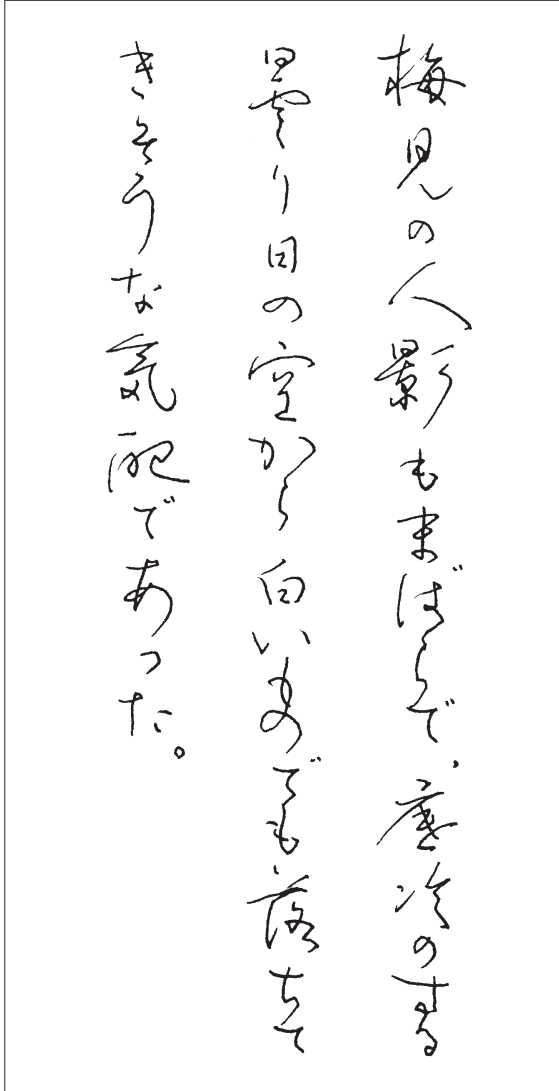 梅見の人影もまばらで、底冷のする
曇り日の空から白いものでも落ちて
きそうな気配であった。